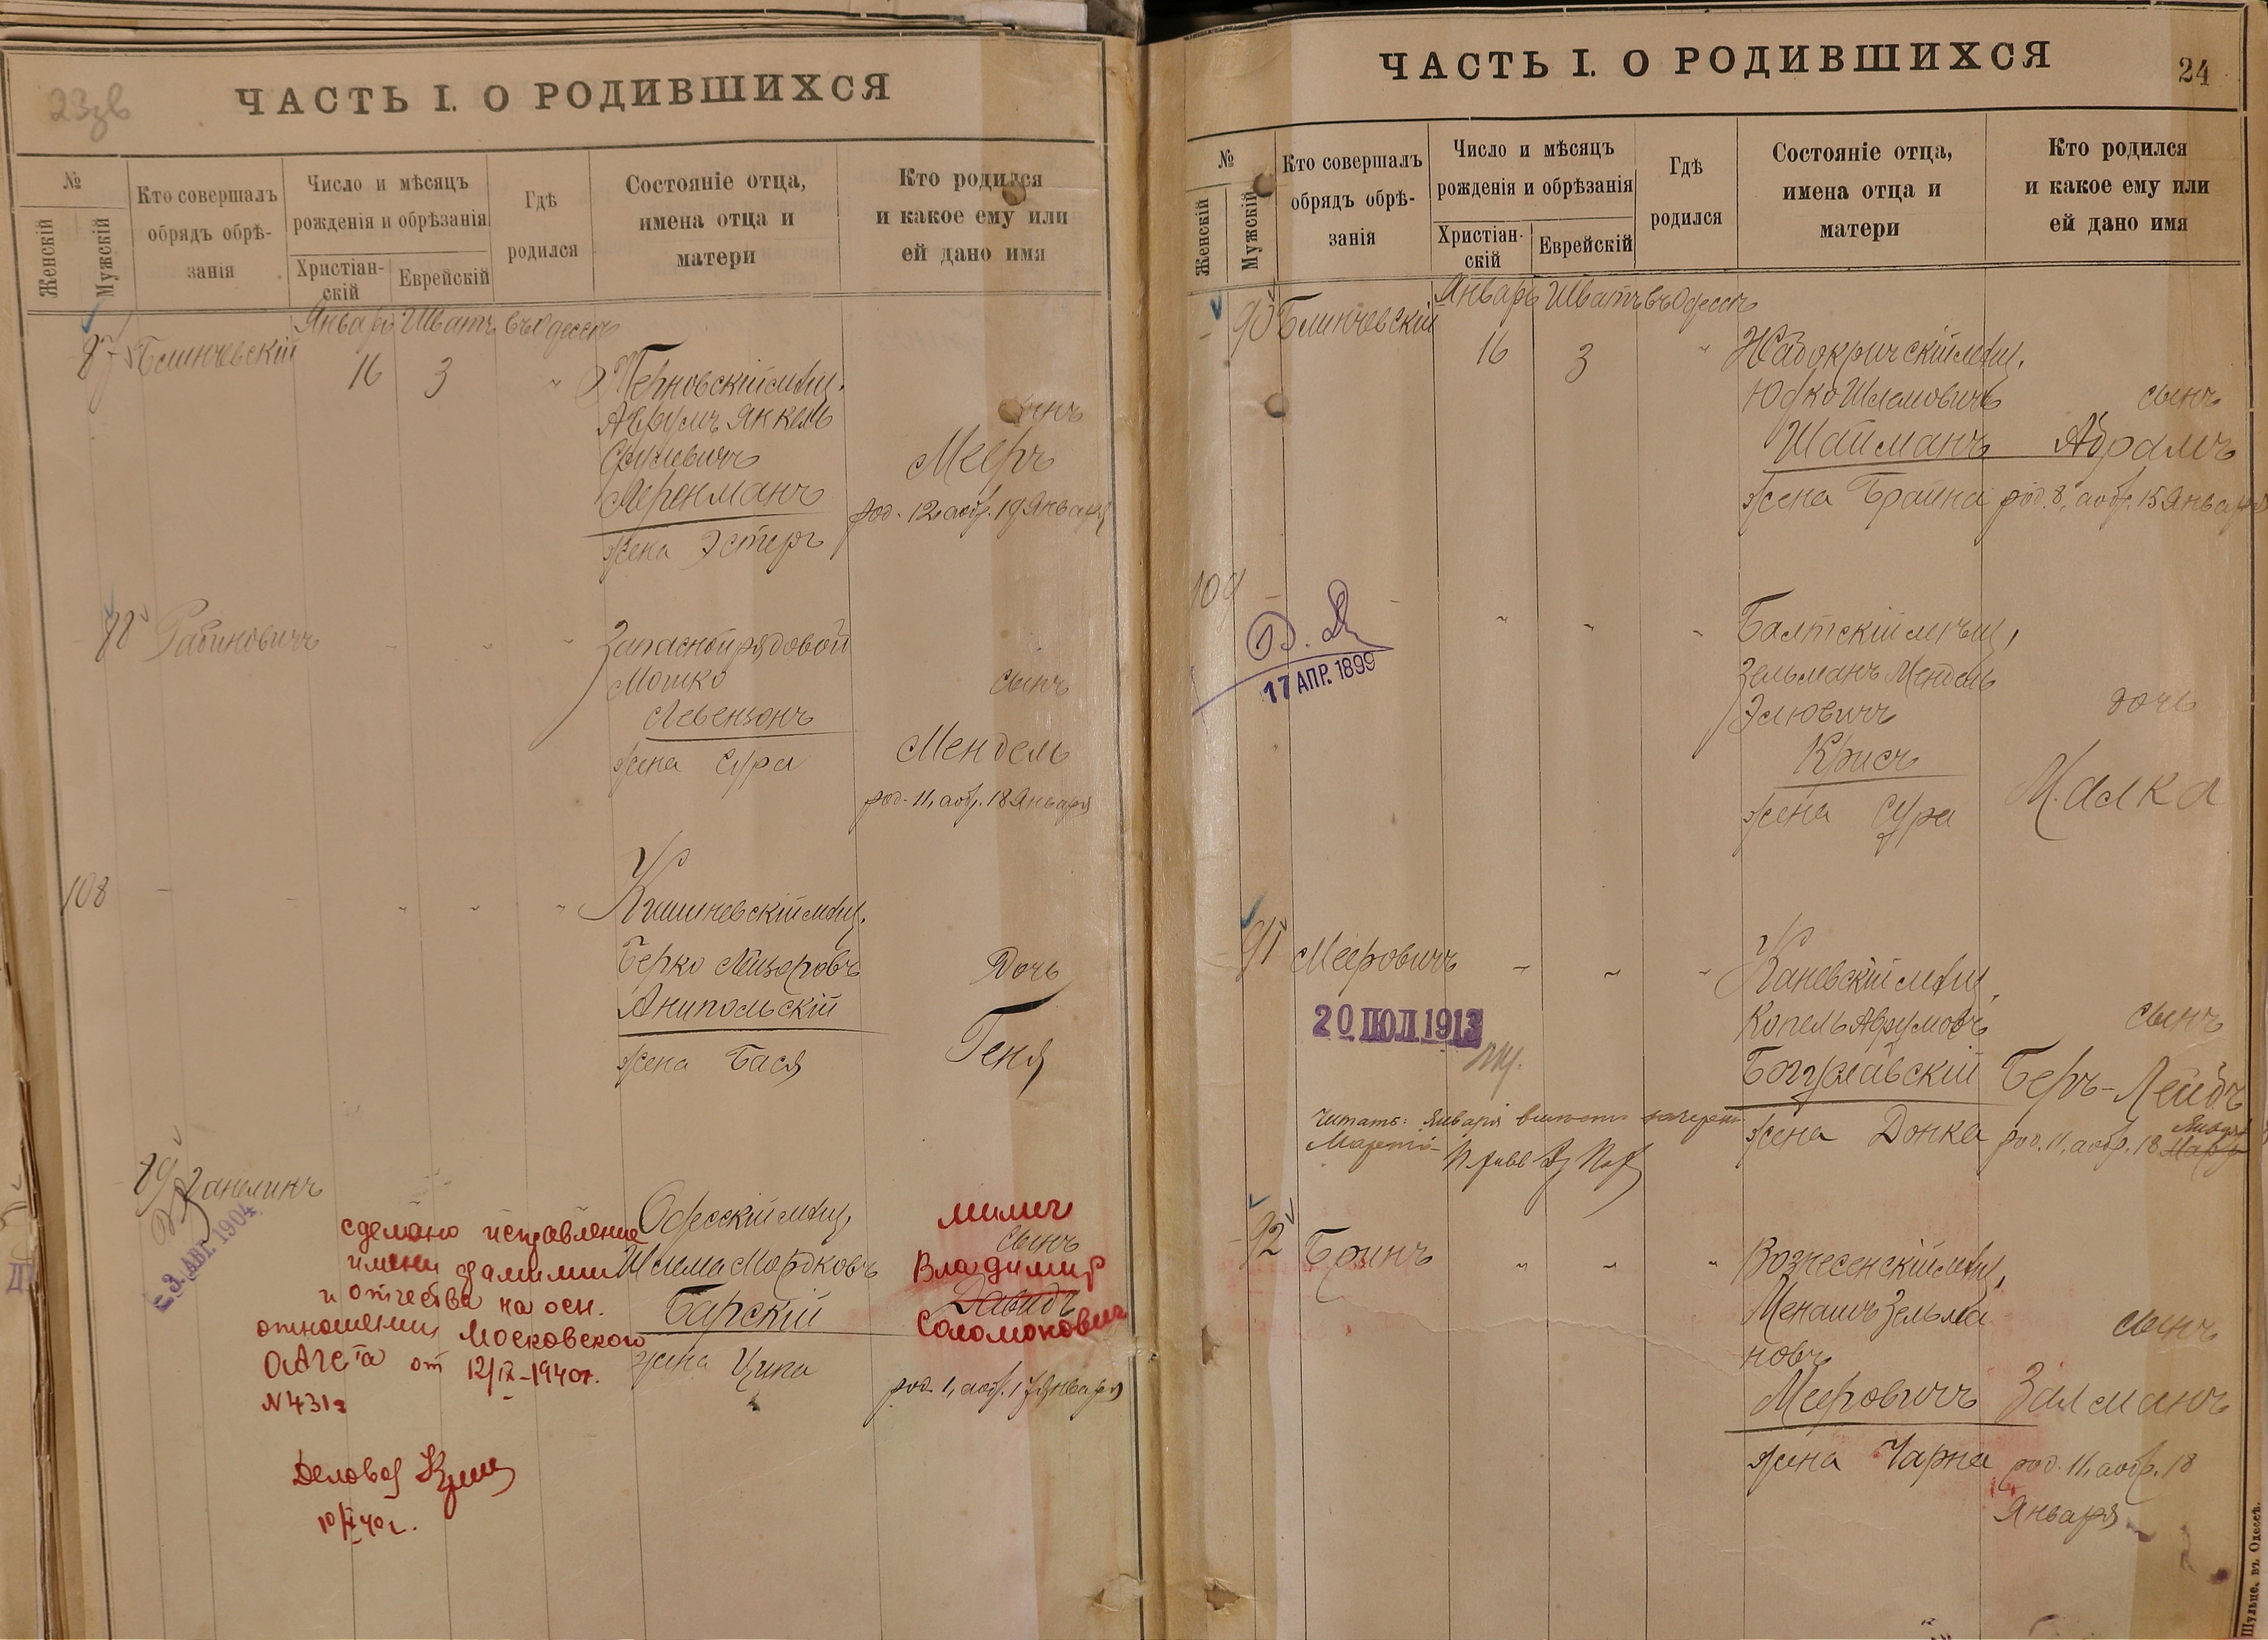 23зв
ЧАСТЬ I. О РОДИВШИХСЯ
№
Женскій
Мужскій
Кто совершалъ
обрядъ обрѣ-
занія
Число и мѣсяцъ
рожденія и обрѣзанія
Христіан-
скій
Еврейскій
Гдѣ
родился
Состояніе отца,
имена отца и
матери
Кто родился
и какое ему или
ей дано имя
Январь Шватъ въ Одессѣ
87 Блинчевскій 16 3 "
Терновскій мѣщ.
Аврумъ Янкель
Лерниманъ
жена Эстеръ
сынъ
Мееръ
род. 12, а обр. 19 Января
88 Рабиновичъ " " "
Запасной рядовой
Мошко
Левензонъ
жена Сура
сынъ
Мендель
род. 11, а обр. 18 Января
108 - - " " "
Кишиневскій мѣщ.
Берко Лейзеровъ
Анипольскій
жена Бася
Дочь
Геня
89 Ганелинъ
- 3. АВГ. 1904
Одесскій мѣщ.
Шлема Мордковъ
Барскій
жена Ципа
сынъ
Давидъ
Владимир
Соломонович
род. 1, а обр. 17 Января
сделано исправление
имени фамилии
и отчества на осн.
отношения Московского
ОАГСʼа от 12/IX-1940г.
N 431з
Деловод
ЧАСТЬ I. О РОДИВШИХСЯ
24
№
Женскій
Мужскій
Кто совершалъ
обрядъ обрѣ-
занія
Число и мѣсяцъ
рожденія и обрѣзанія
Христіан-
скій
Еврейскій
Гдѣ
родился
Состояніе отца,
имена отца и
матери
Кто родился
и какое ему или
ей дано имя
Январь Шватъ въ Одессѣ
- 90 Блинчевскій 16 3 "
Жабокричскій мѣщ.
Юдко Шлемовичъ
Шайманъ
жена Брайна
сынъ
Абрамъ
род. 8, а обр. 15 Января
109 - - " " "
17 АПР. 1899
Балтскій мѣщ.
Зельманъ Мендель
Элювичъ
Крисъ
жена Сура
дочь
Малка
- 91 Мееровичъ " " "
20 ІЮЛ 1913
Каневскій мѣщ.
Копель Аврумовъ
Богуславскій
жена Донка
сынъ
Беръ-Лейбъ
род. 11, а обр. 18 Января
Читать: Января вместо зачеркн.
Марта
- 92 Бринъ " " "
Вознесенскій мѣщ.
Менашъ Зельма
новъ
Мееровичъ
жена Чарна
сынъ
Залманъ
род. 11, а обр. 18
Января
Шульце, въ Одессѣ.